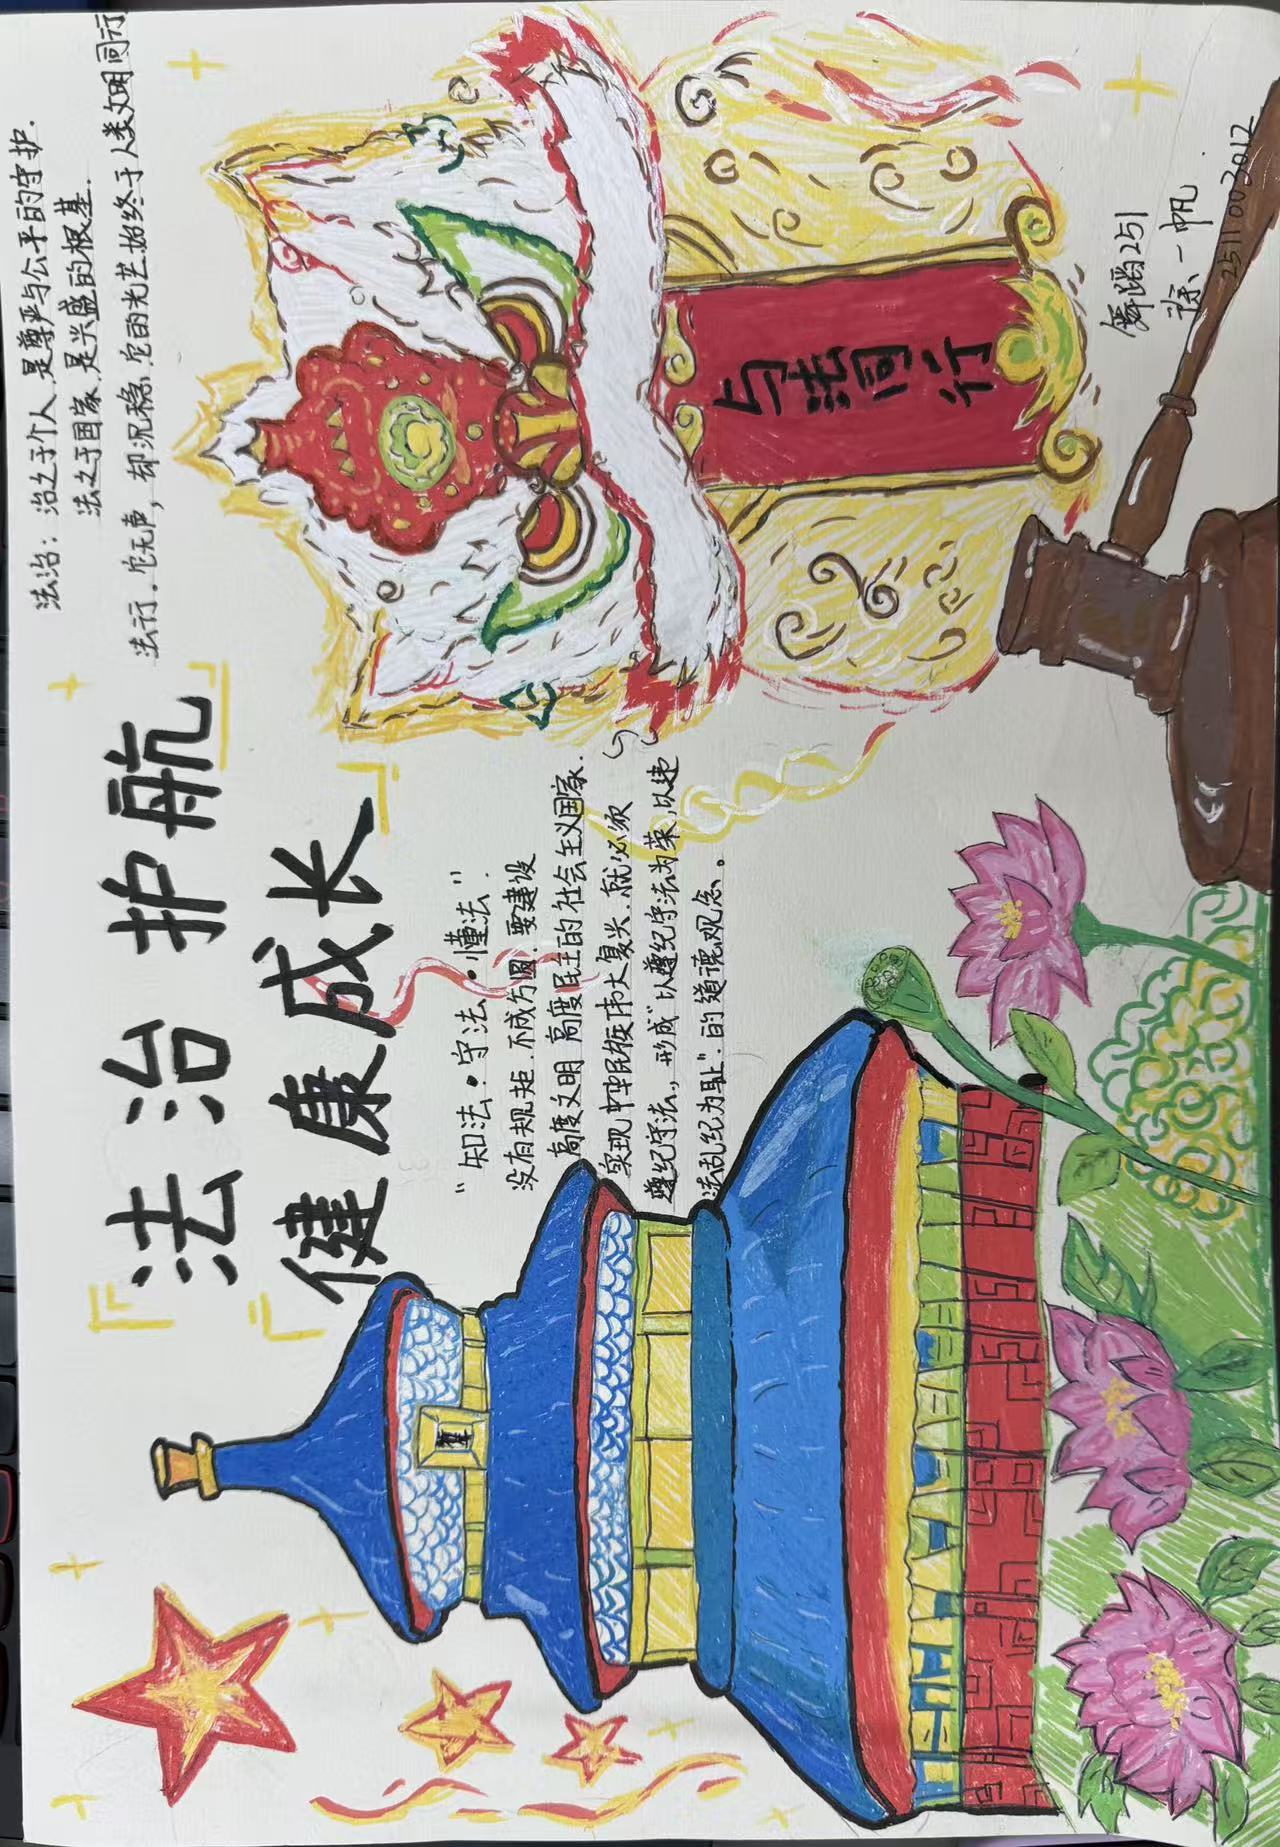 「法治护航」
「健康成长」
法治：治之于个人，是尊严与公平的守护．
法之于国家，是兴盛的根基．
法行．它无声，却沉稳，它的光芒始终于人类文明同行
“知法·守法·懂法”．
没有规矩．不成方圆．要建设
高度文明 高度民主的社会主义国家．
实现中华民族伟大复兴．就必须
遵纪守法．，形成“以遵纪守法为荣，以违
法乱纪为耻”．的道德观念。
与法同行
舞蹈251
徐一帆．
2511003012